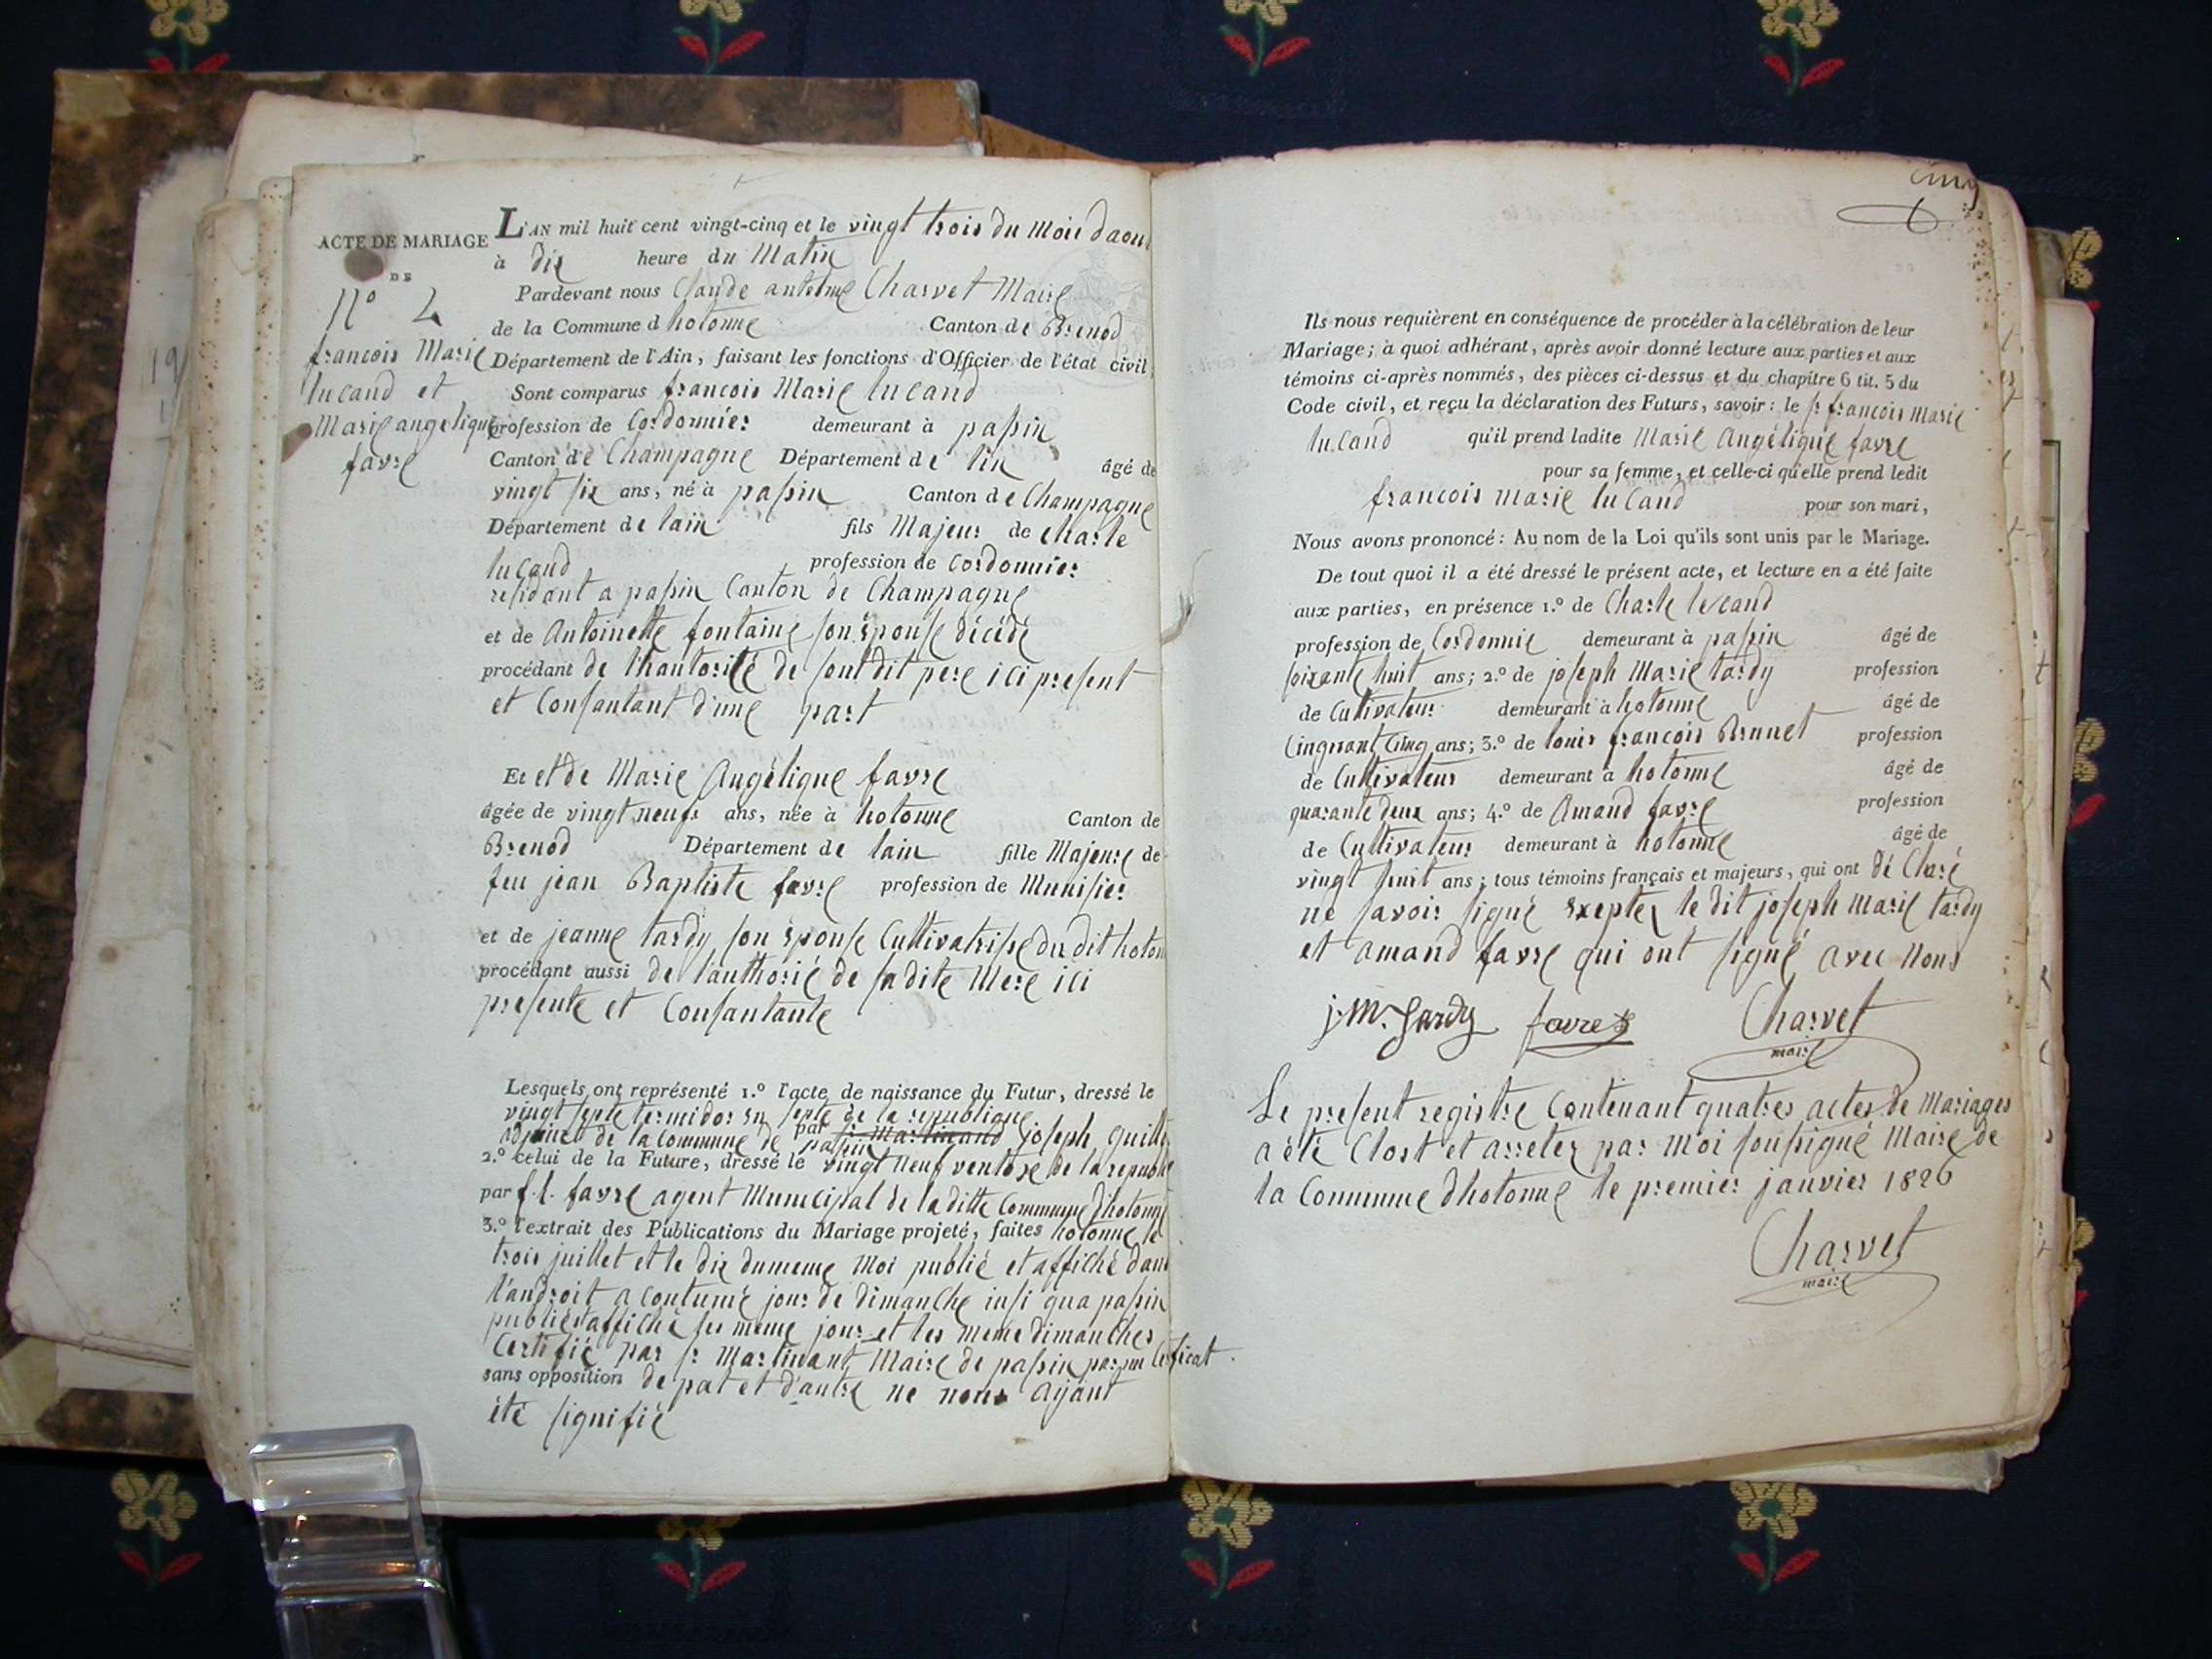 ACTE DE MARIAGE
DE
N° 4
francois Marie
lucand et
Marie angelique
favre
L'AN mil huit cent vingt-cinq et le vingt trois du Mois daout
à dix heure du Matin
Pardevant nous Claude antelme Charvet Maire
de la Commune d hotonne Canton de Brenod
Département de l'Ain, faisant les fonctions d'Officier de l'état civil,
Sont comparus francois Marie lucand
profession de Cordonnier demeurant à passin
Canton de Champagne Département de lin âgé de
vingt six ans, né à passin Canton de Champagne
Département de lain fils Majeur de charle
lucand profession de Cordonnier
residant a passin Canton de Champagne
et de Antoinette fontaine son épouse décédé
procédant de lhautorité de sont dit pere ici present
et Consantant d'une part
Et et de Marie Angélique favre
âgée de vingt neufs ans, née à hotonne Canton de
Brenod Département de lain fille Majeure de
feu jean Baptiste favre profession de Munisier
et de jeanne tardy son épouse Cultivatrisse du dit hoton
procédant aussi de lauthorié de sadite Mere ici
presente et Consantante
Lesquels ont représenté 1.º l'acte de naissance du Futur, dressé le
vingt septe termidor en septe de la republique
adjoint de la commune de passin par sr Martinand joseph guille
2.º celui de la Future, dressé le vingt neuf ventose de la republi
par f. l. favre agent Municipal de laditte Commune dhotonne
3.º l'extrait des Publications du Mariage projeté, faites hotonne le
trois juillet et le dix dumeme Moi publié et affiché dans
l'androit a coutumé jour de dimanche insi qua passin
publiéstaffiché les même jour et les meme dimanches
Certifié par sr Martinant Maire de passin par un Certificat.
sans opposition de pat et d'autre ne nous ayant
été signifié
cinq
Ils nous requièrent en conséquence de procéder à la célébration de leur
Mariage; à quoi adhérant, après avoir donné lecture aux parties et aux
témoins ci-après nommés, des pièces ci-dessus et du chapitre 6 tit. 5 du
Code civil, et reçu la déclaration des Futurs, savoir: le sr francois marie
lucand qu'il prend ladite Marie Angélique favre
pour sa femme, et celle-ci qu'elle prend ledit
francois marie lucand pour son mari,
Nous avons prononcé: Au nom de la Loi qu'ils sont unis par le Mariage.
De tout quoi il a été dressé le présent acte, et lecture en a été faite
aux parties, en présence 1.º de Charle lucand
profession de Cordonnie demeurant à passin âgé de
soixante huit ans; 2.º de joseph Marie tardy profession
de Cultivateur demeurant à hotonne âgé de
Cinquant Cinq ans; 3.º de louis francois Brunet profession
de Cultivateur demeurant à hotonne âgé de
quarante deux ans; 4.º de Amand favre profession
de Cultivateur demeurant à hotonne âgé de
vingt huit ans; tous témoins français et majeurs, qui ont dé Claré
ne savoir signé exeptez le dit joseph Marie tardy
et amand favre qui ont signé avec Nous
j. M. Tardy favre Charvet
maire
Le present registre Contenant quatres actes de Mariages
a été Clost et arretez par Moi soussigné Maire de
la Commune dhotonne le premier janvier 1826
Charvet
maire